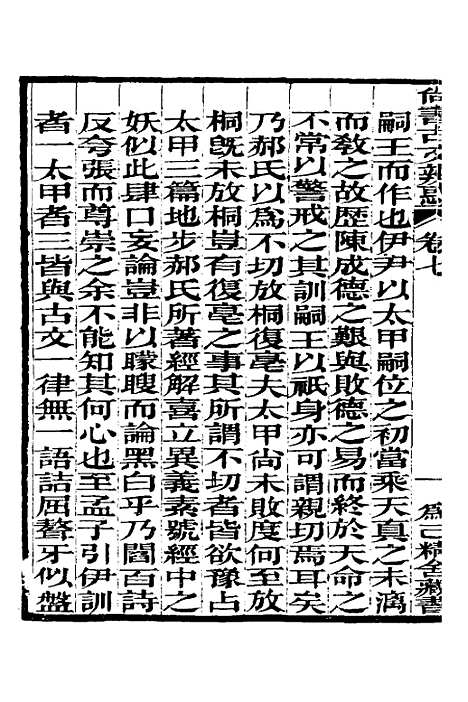 尚書古文辨惑 卷七
一 為己精舍藏書
嗣王而作也伊尹以太甲嗣位之初當乘天真之未漓
而敎之故歷陳成德之艱與敗德之易而終於天命之
不常以警戒之其訓嗣王以祗身亦可謂親切焉耳矣
乃郝氏以爲不切放桐復毫夫太甲尚未敗度何至放
桐旣未放桐豈有復毫之事其所謂不切者皆欲豫占
太甲三篇地步郝氏所著經解喜立異義素號經中之
妖似此肆口妄論豈非以矇瞍而論黑白乎乃閻百詩
反夸張而尊崇之余不能知其何心也至孟子引伊訓
者一太甲者三皆與古文一律無一語詰屈聱牙似盤